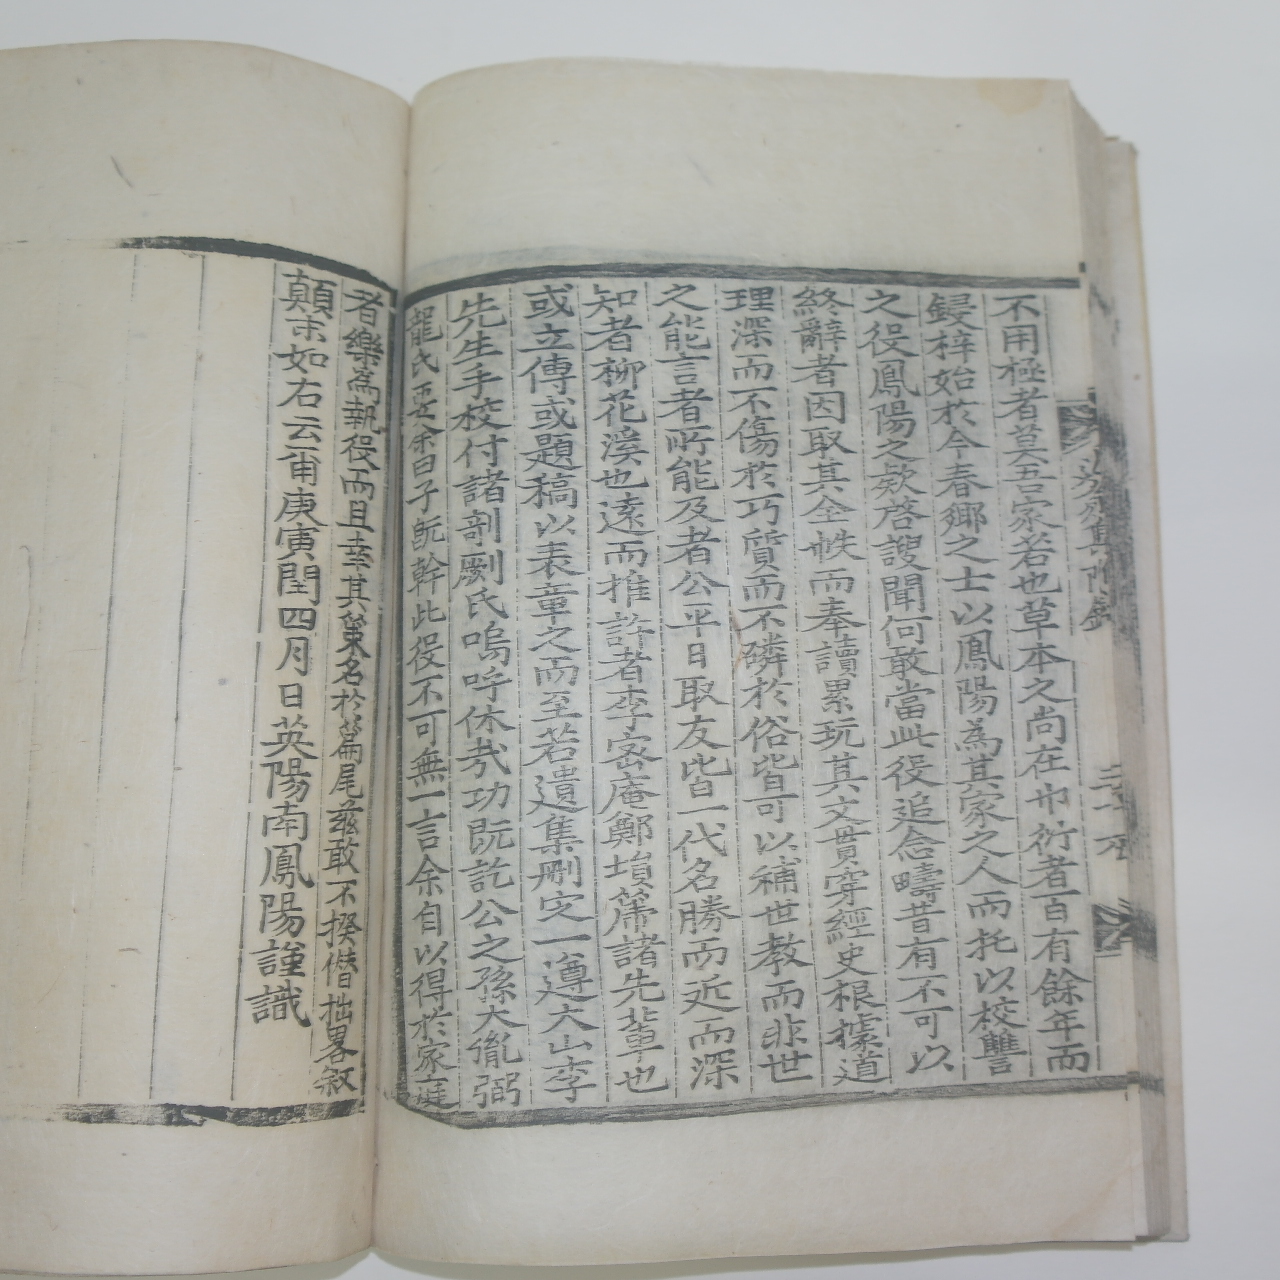 不用極者莫吾家若也草本之尚在巾衍者百有餘年而
鋟梓始於今春鄉之士以鳳陽為其家之人而托以校讐
之役鳳陽之欵啓謏聞何敢當此役追念疇昔有不可以
終辭者因取其全帙而奉讀累玩其文貫穿經史根據道
理深而不傷於巧質而不磷於俗皆可以補世教而非世
之能言者所能及者公平日取友皆一代名勝而近而深
知者柳花溪也遠而推許者李密庵鄭塤篪諸先輩也
或立傳或題稿以表章之而至若遺集刪定一遵大山李
先生手校付諸剞劂氏嗚呼休哉功既訖公之孫大胤弼
龍氏要余曰子旣幹此役不可無一言余自以得於家庭
者樂為執役而且幸其策名於篇尾玆敢不揆僭拙畧敘
顛末如右云甭庚寅閏四月日英陽南鳳陽謹識
集附錄